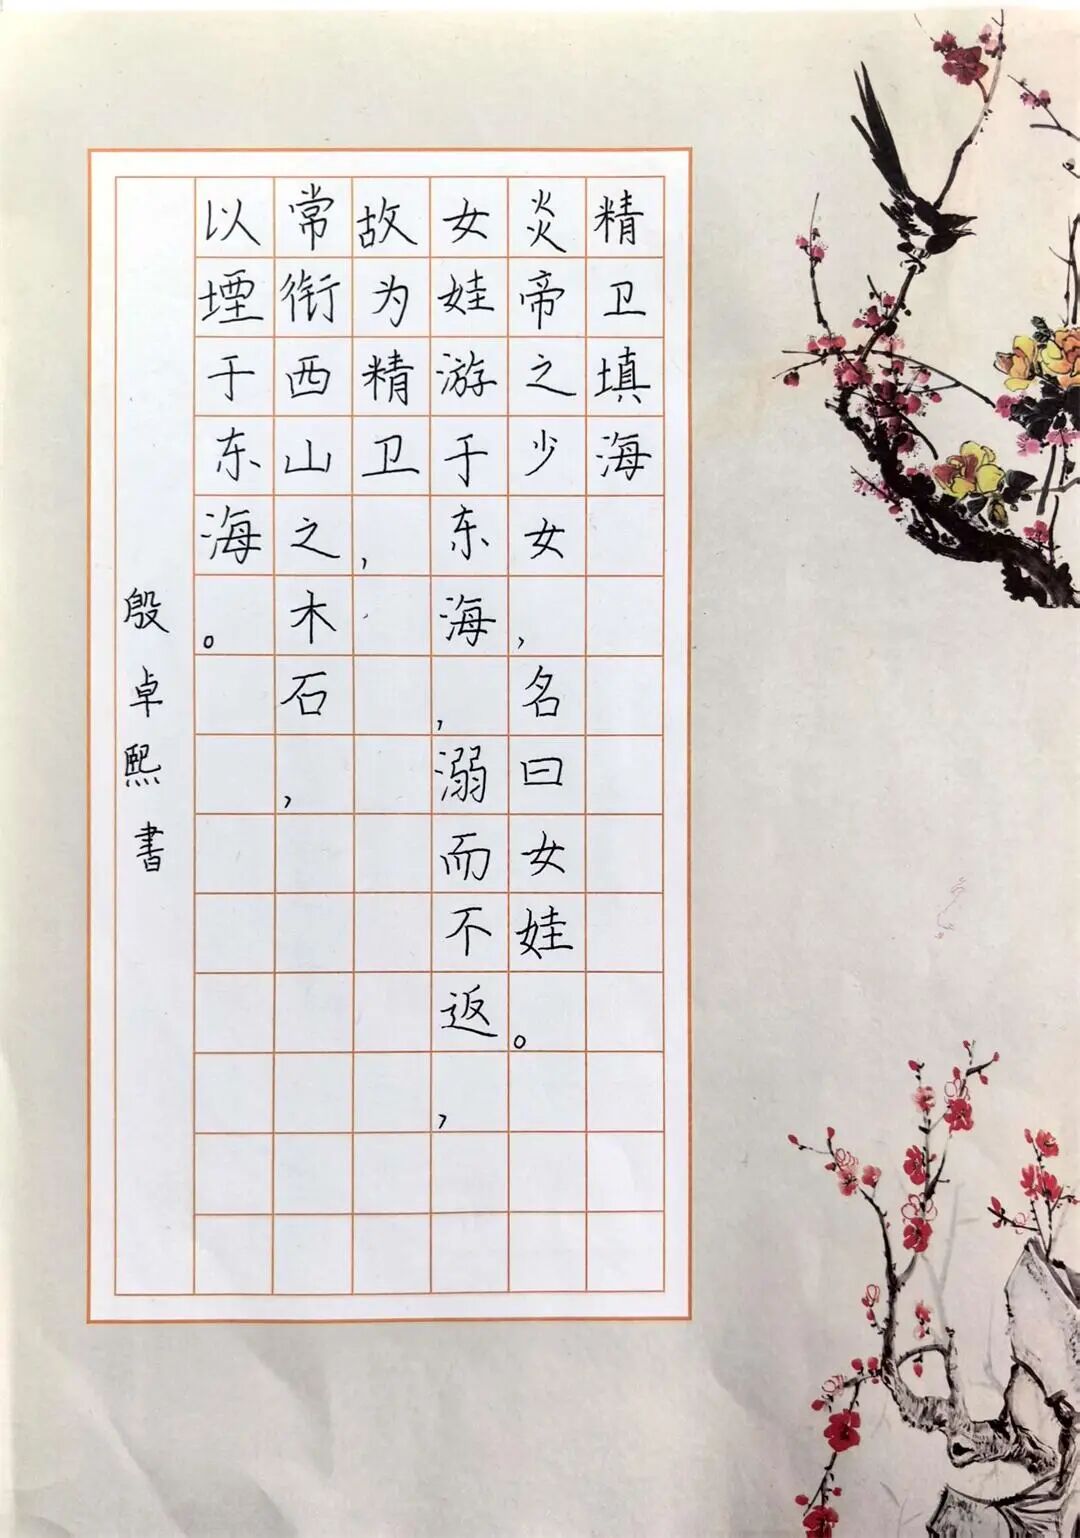 精卫填海
炎帝之少女，名曰女娃。
女娃游于东海，溺而不返，
故为精卫，
常衔西山之木石，
以堙于东海。
殷卓熙书